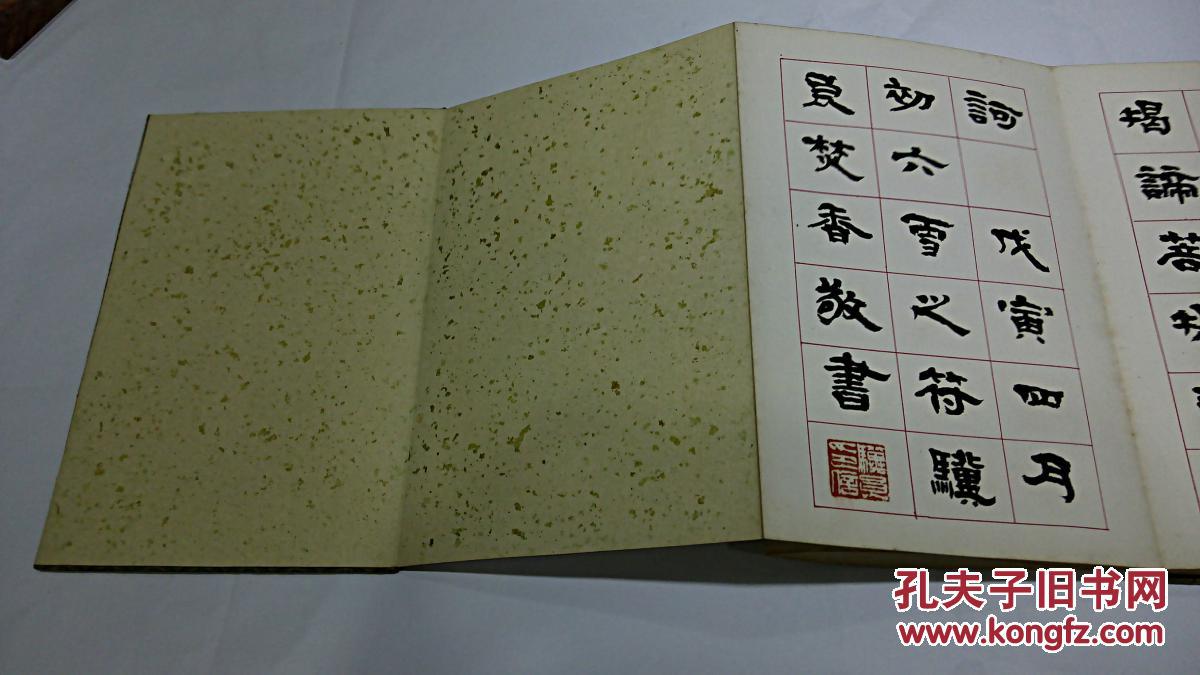 揭諦菩提
訶 戊寅四月
初六雪之符驥
良焚香敬書
孔夫子旧书网
www.kongfz.com